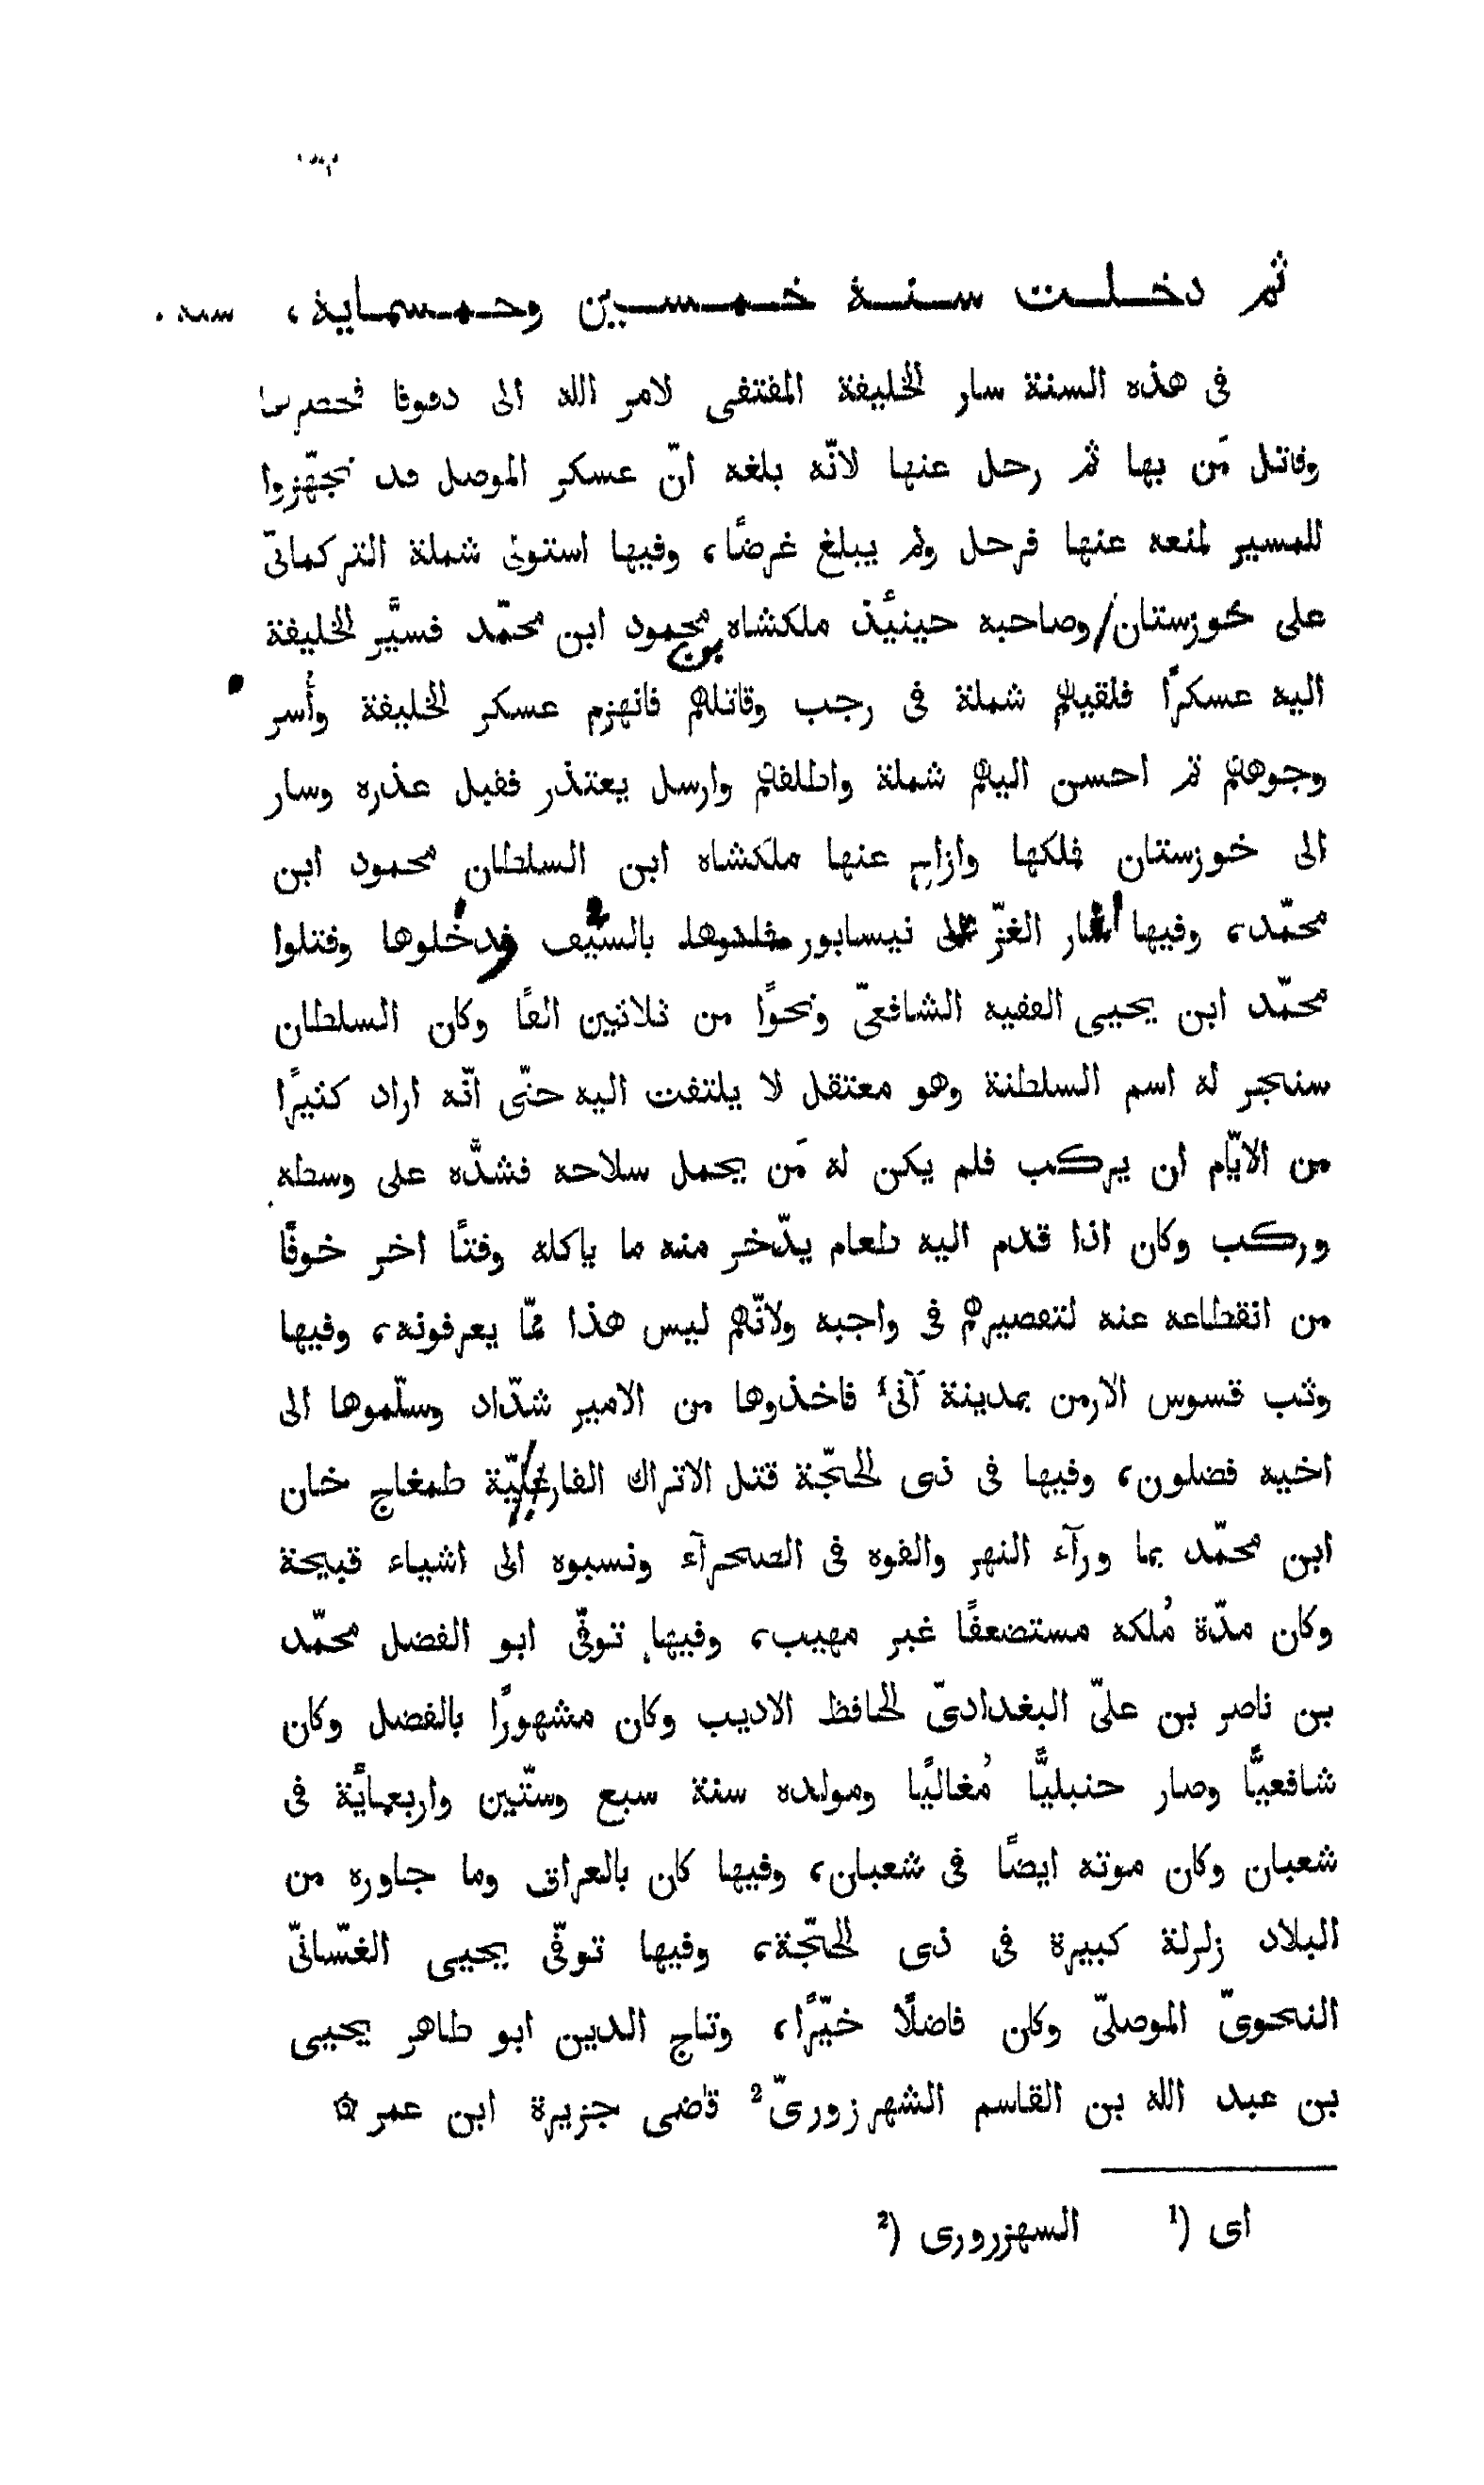 ثم دخلت سنة خمسين وخمسماية، سنة
فى هذه السنة سار الخليفة المقتفى لامر الله الى دقوقا فحصرها
وقاتل مَن بها ثم رحل عنها لانّه بلغه انّ عسكر الموصل قد تجهّزوا
للمسير لمنعه عنها فرحل ولم يبلغ غرضًا، وفيها استولى شملة التركمانىّ
على خوزستان/وصاحبه حينئذ ملكشاه بن محمود ابن محمّد فسيَّر الخليفة
اليه عسكرًا فلقيهم شملة فى رجب وقاتلهم فانهزم عسكر الخليفة وأُسر
وجوههم ثم احسن اليهم شملة واطلقهم وارسل يعتذر فقبل عذره وسار
الى خوزستان فملكها وازاح عنها ملكشاه ابن السلطان محمود ابن
محمّد، وفيها الغزّ نيسابور بالسيف فدخلوها وقتلوا
محمّد ابن يحيى الفقيه الشافعىّ ونحوًا من ثلاثين الفًا وكان السلطان
سنجر له اسم السلطنة وهو معتقل لا يلتفت اليه حتّى انّه اراد كثيرًا
من الايّام ان يركب فلم يكن له مَن يحمل سلاحه فشدّه على وسطه
وركب وكان اذا قدم اليه طعام يدّخر منه ما ياكله وقتًا اخر خوفًا
من انقطاعه عنه لتقصيرهم فى واجبه ولانّهم ليس هذا ممّا يعرفونه، وفيها
وثب قسوس الارمن بمدينة آنى¹ فاخذوها من الامير شدّاد وسلّموها الى
اخيه فضلون، وفيها فى ذى الحجّة قتل الاتراك القارغليّة طمغاج خان
ابن محمّد بما ورآء النهر والقوه فى الصحرآء ونسبوه الى اشياء قبيحة
وكان مدّة مُلكه مستضعفًا غير مهيب، وفيها توفّى ابو الفضل محمّد
بن ناصر بن علىّ البغدادىّ الحافظ الاديب وكان مشهورًا بالفضل وكان
شافعيًّا وصار حنبليًّا مُغاليًا ومولده سنة سبع وستّين واربعمائة فى
شعبان وكان موته ايضًا فى شعبان، وفيها كان بالعراق وما جاوره من
البلاد زلزلة كبيرة فى ذى الحجّة، وفيها توفّى يحيى الغسّانىّ
النحوىّ الموصلىّ وكان فاضلًا خيّرًا، وتاج الدين ابو طاهر يحيى
بن عبد الله بن القاسم الشهرزورىّ² قاضى جزيرة ابن عمر ۞
¹) اى ²) السهزرورى